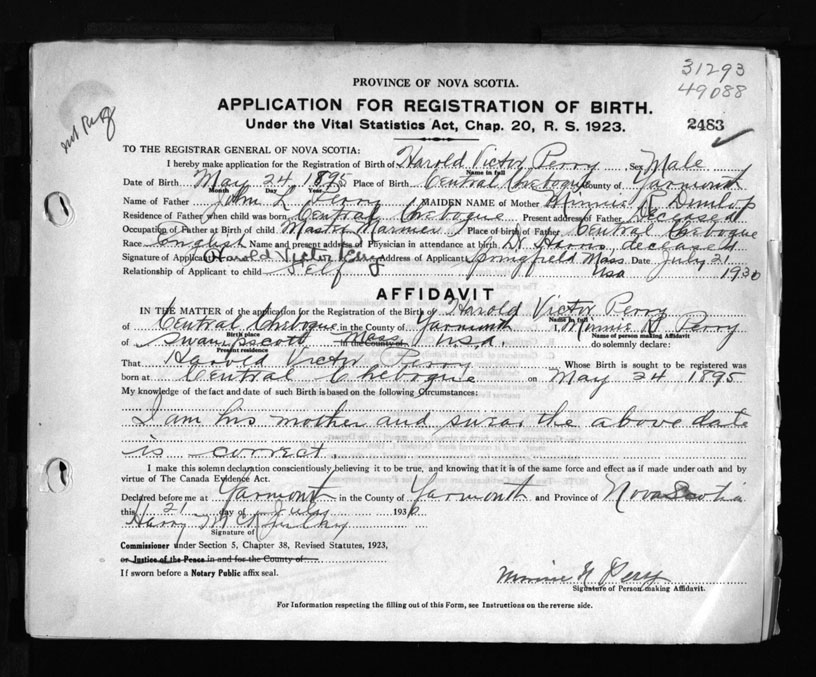 31293
49088
PROVINCE OF NOVA SCOTIA.
APPLICATION FOR REGISTRATION OF BIRTH.
Under the Vital Statistics Act, Chap. 20, R. S. 1923.
2483
TO THE REGISTRAR GENERAL OF NOVA SCOTIA:
I hereby make application for the Registration of Birth of Harold Victor Perry Sex Male
Name in full
Date of Birth May 24 1895 Place of Birth Central Chebogue County of Yarmouth
Month Day Year
Name of Father John L Perry MAIDEN NAME of Mother Minnie R Dunlop
Residence of Father when child was born Central Chebogue Present address of Father Deceased
Occupation of Father at Birth of child Master Mariner Place of birth of Father Central Chebogue
Race English Name and present address of Physician in attendance at birth Dr Harris, deceased
Signature of Applicant Harold Victor Perry Address of Applicant Springfield Mass. Date July 21
Relationship of Applicant to child Self Usa 1930
AFFIDAVIT
IN THE MATTER of the application for the Registration of the Birth of Harold Victor Perry
Name in full
of Central Chebogue in the County of Yarmouth I, Minnie R Perry
Birth place Name of person making Affidavit
of Swampscott in the County of Mass USA. do solemnly declare:
Present residence
That Harold Victor Perry Whose Birth is sought to be registered was
born at Central Chebogue on May 24 1895
My knowledge of the fact and date of such Birth is based on the following Circumstances:
I am his mother and swear the above date
is correct.
I make this solemn declaration conscientiously believing it to be true, and knowing that it is of the same force and effect as if made under oath and by
virtue of The Canada Evidence Act.
Declared before me at Yarmouth in the County of Yarmouth and Province of Nova Scotia
this 21 day of July 1930
Harry
Signature of
Commissioner under Section 5, Chapter 38, Revised Statutes, 1923,
or Justice of the Peace in and for the County of
If sworn before a Notary Public affix seal.
Minnie R Perry
Signature of Person making Affidavit.
For Information respecting the filling out of this Form, see Instructions on the reverse side.